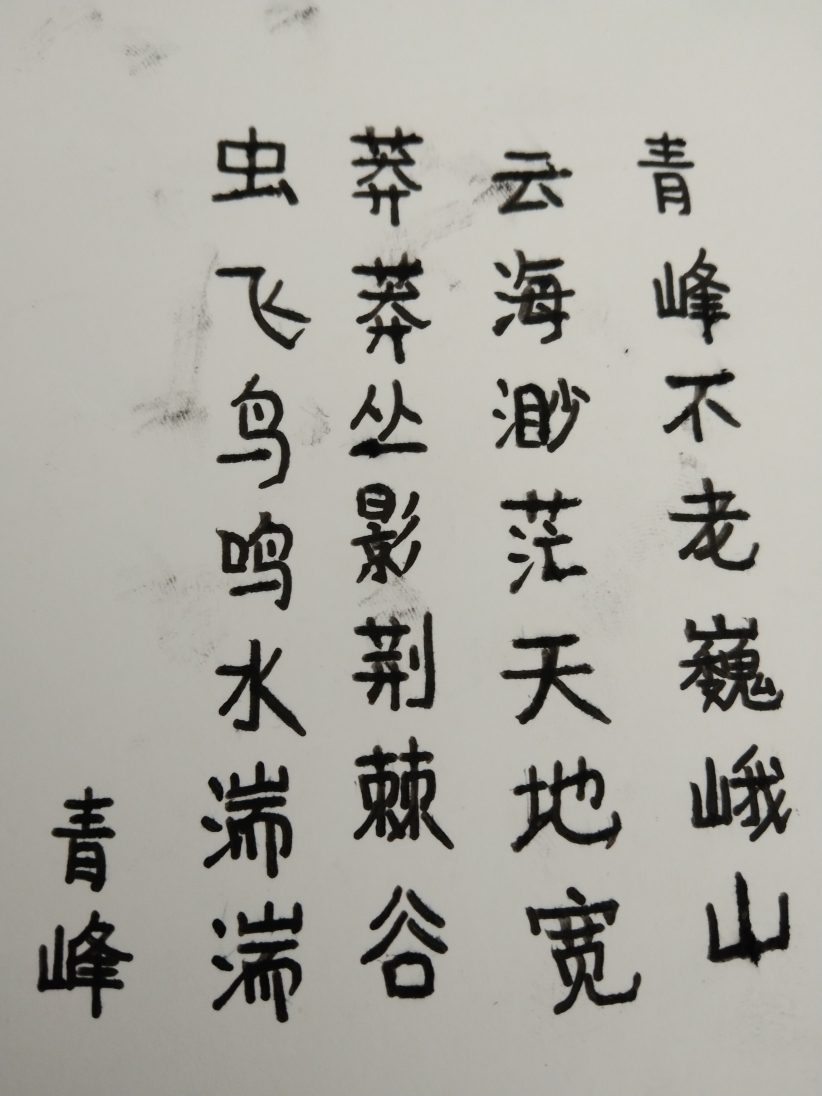 青峰不老巍峨山
云海渺茫天地宽
莽莽丛影荆棘谷
虫飞鸟鸣水湍湍
青峰